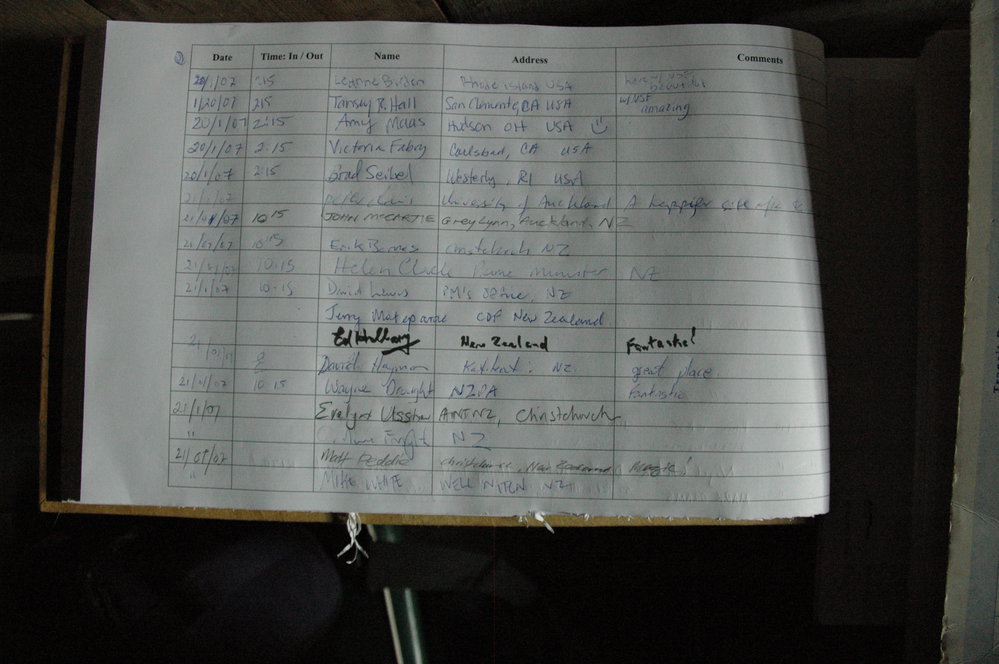 Date Time: In / Out Name Address Comments
20/1/07 2:15 Leanne Rhode Island USA
1/20/07 215 Tansey R. Hall San Clemente, CA USA w/NSF amazing
20/1/07 2:15 Amy Maas Hudson OH USA
20/1/07 2:15 Victoria Fabry Carlsbad, CA USA
20/1/07 2:15 Brad Seibel Westerly, RI USA
21/1/07 University of Auckland A happier
21/01/07 10 15 JOHN Grey Lynn, Auckland, NZ
21/01/07 10:15 Erik Barnes Christchurch NZ
21/01/07 10.15 Helen Clark Prime Minister NZ
21/1/07 10.15 David Lewis PM's Office, NZ
Jerry Mateparae CDF New Zealand
Ed Hillary New Zealand Fantastic!
David NZ great place.
21/01/07 10 15 Wayne NZPA Fantastic
21/1/07 Evelyn ANTNZ, Christchurch
" NZ
21/01/07 Matt Peddie Christchurch, New Zealand Magic!
" MIKE WHITE NZ